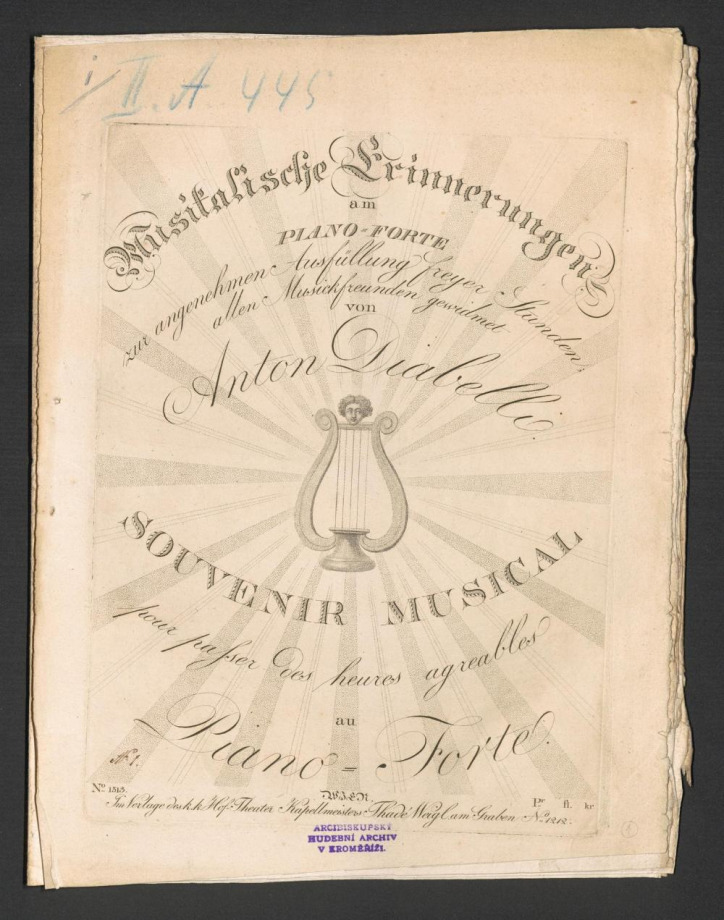 II. A 445
Musikalische Erinnerungen
am
PIANO-FORTE
zur angenehmen Ausfüllung freyer Stunden,
allen Musickfreunden gewidmet
von
Anton Diabelli.
SOUVENIR MUSICAL
pour passer des heures agreables
au
Piano=Forte.
No. 1.
No. 1515.
WIEN.
Pr. fl. kr
Im Verlage des k.k. Hof-Theater Kapellmeisters Thadé Weigl am Graben No. 1212.
ARCIBISKUPSKÝ
HUDEBNÍ ARCHIV
V KROMĚŘÍŽI.